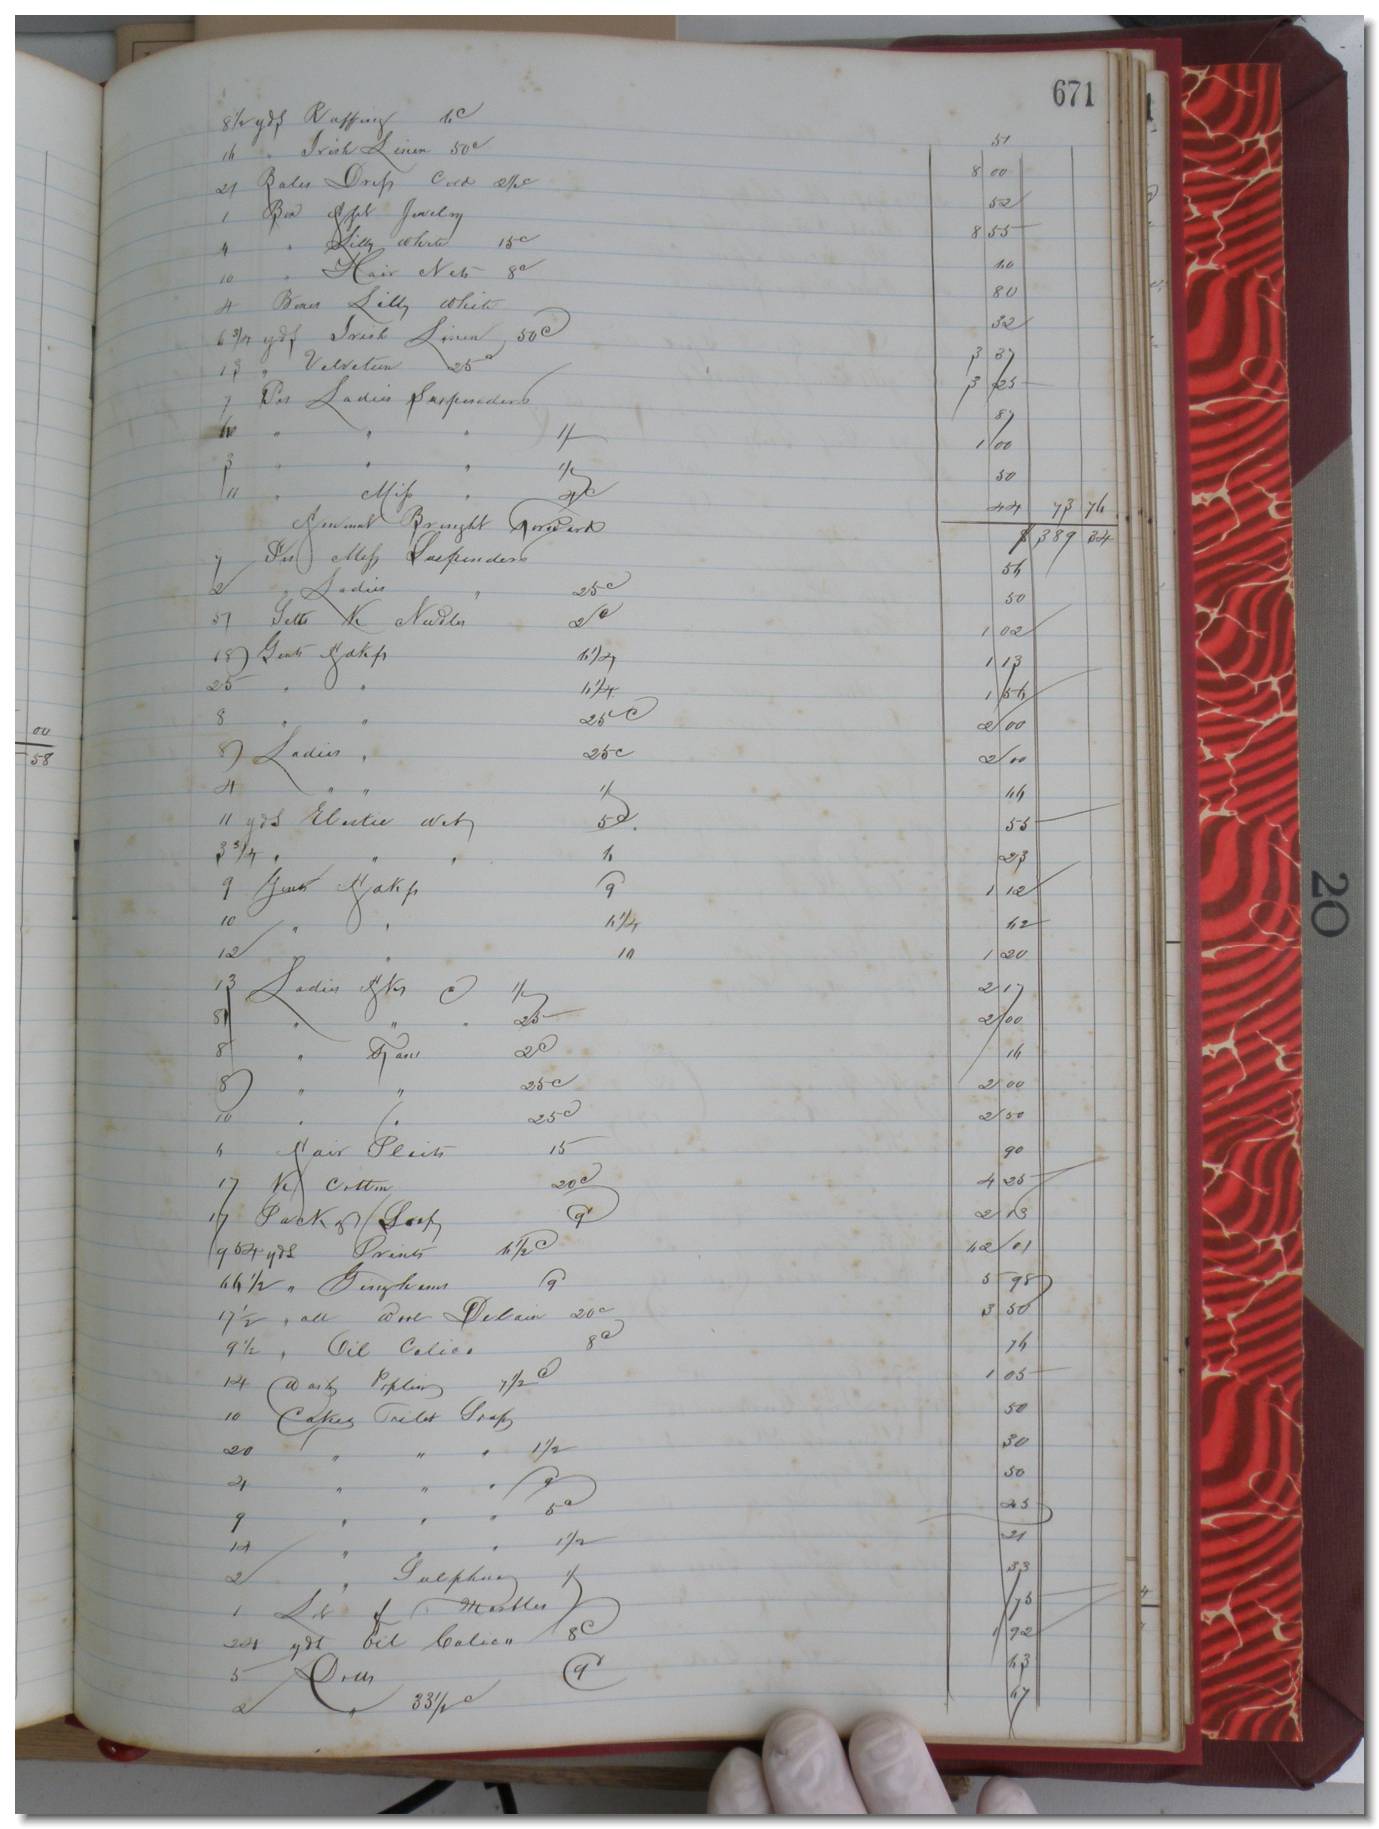 671
8½ yds Ruffing 6c 51
16 " Irish Linen 50c 8 00
21 Bales Dress Cord 2½c 52
1 Box Jewelry 8 55
4 " Lilly White 15c 60
10 " Hair Nets 8c 80
4 Boxes Lilly White 32
6 3/4 yds Irish Linen 50c 3 37
13 " Velveteen 25c 3 25
7 Prs Ladies Suspenders 87
" " " 1 00
3 " " " 50
11 " Miss " 4c 44 73 76
Amount Brought Forward $ 389 34
7 Prs Miss Suspenders 56
2 " Ladies " 25c 50
51 Setts K Needles 2c 1 02
18 Gents Hdkfs 6¼ 1 13
25 " " 6¼ 1 56
8 " " 25c 2 00
8 Ladies " 25c 2 00
4 " " 66
11 yds Elastic Web 5c 55
3 3/4 " " " 6 23
9 Gents Hdkfs 1 12
10 " " 6¼ 62
12 " " 10 1 20
13 Ladies Hkfs 2 17
8 " " " 25 2 00
8 " 2c 16
8 " " 25c 2 00
10 " " 25c 2 50
6 Hair Plaits 15 90
17 K Cotton 20c 4 25
17 Pack of Soap 9 2 13
954 yds Prints 6½c 62 01
66½ " Ginghams 9 5 98
17½ " all Wool Delain 20c 3 50
9½ " Oil Calico 8c 76
14 Wash Poplin 7½c 1 05
10 Cakes Toilet Soap 50
20 " " " 1½ 30
" " " 9 50
9 " " " 5c 45
14 " " " 1½ 21
2 " Sulphur 33
1 Lot of Marbles 75
24 yds Oil Calico 8c 1 92
5 9 63
2 " 33⅓c 67
00
58
20